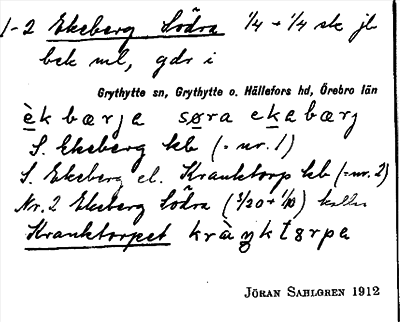 1-2 Ekeberg Södra 1/4 + 1/4 sk jb
bek ml, gdr i
Grythytte sn, Grythytte o. Hällefors hd, Örebro län
èk bærja søra ekabærj
S. Ekeberg kb (= nr. 1)
S. Ekeberg el. Kranktorp kb (= nr. 2)
Nr. 2 Ekeberg Södra (3/20 + 1/10) kallas
Kranktorpet kràŋktɔrpa
JÖRAN SAHLGREN 1912